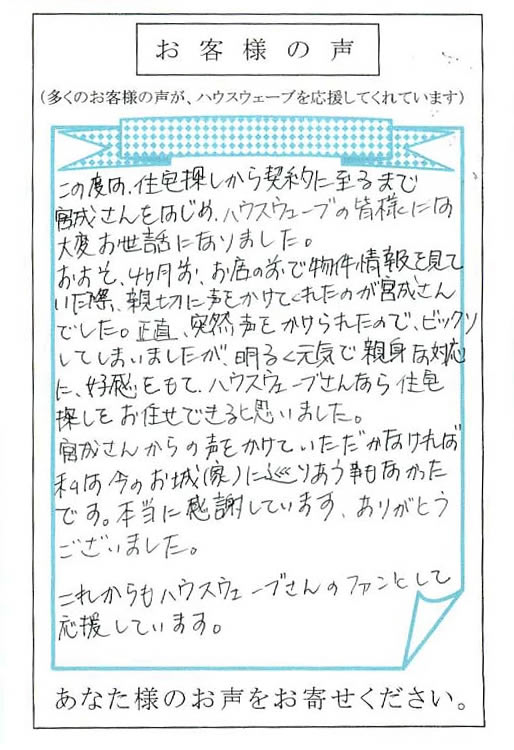 お客様の声
（多くのお客様の声が、ハウスウェーブを応援してくれています）
この度は、住宅探しから契約に至るまで
宮成さんをはじめ、ハウスウェーブの皆様には
大変お世話になりました。
おおそ、4ヶ月前、お店の前で物件情報を見て
いた際、親切に声をかけてくれたのが宮成さん
でした。正直、突然声をかけられたので、ビックリ
してしまいましたが、明るく元気で親身な対応
に、好感をもて、ハウスウェーブさんなら住宅
探しをお任せできると思いました。
宮成さんからの声をかけていただかなければ
私は今のお城(家)に巡りあう事もなかった
です。本当に感謝しています、ありがとう
ございました。
これからもハウスウェーブさんのファンとして
応援しています。
あなた様のお声をお寄せください。